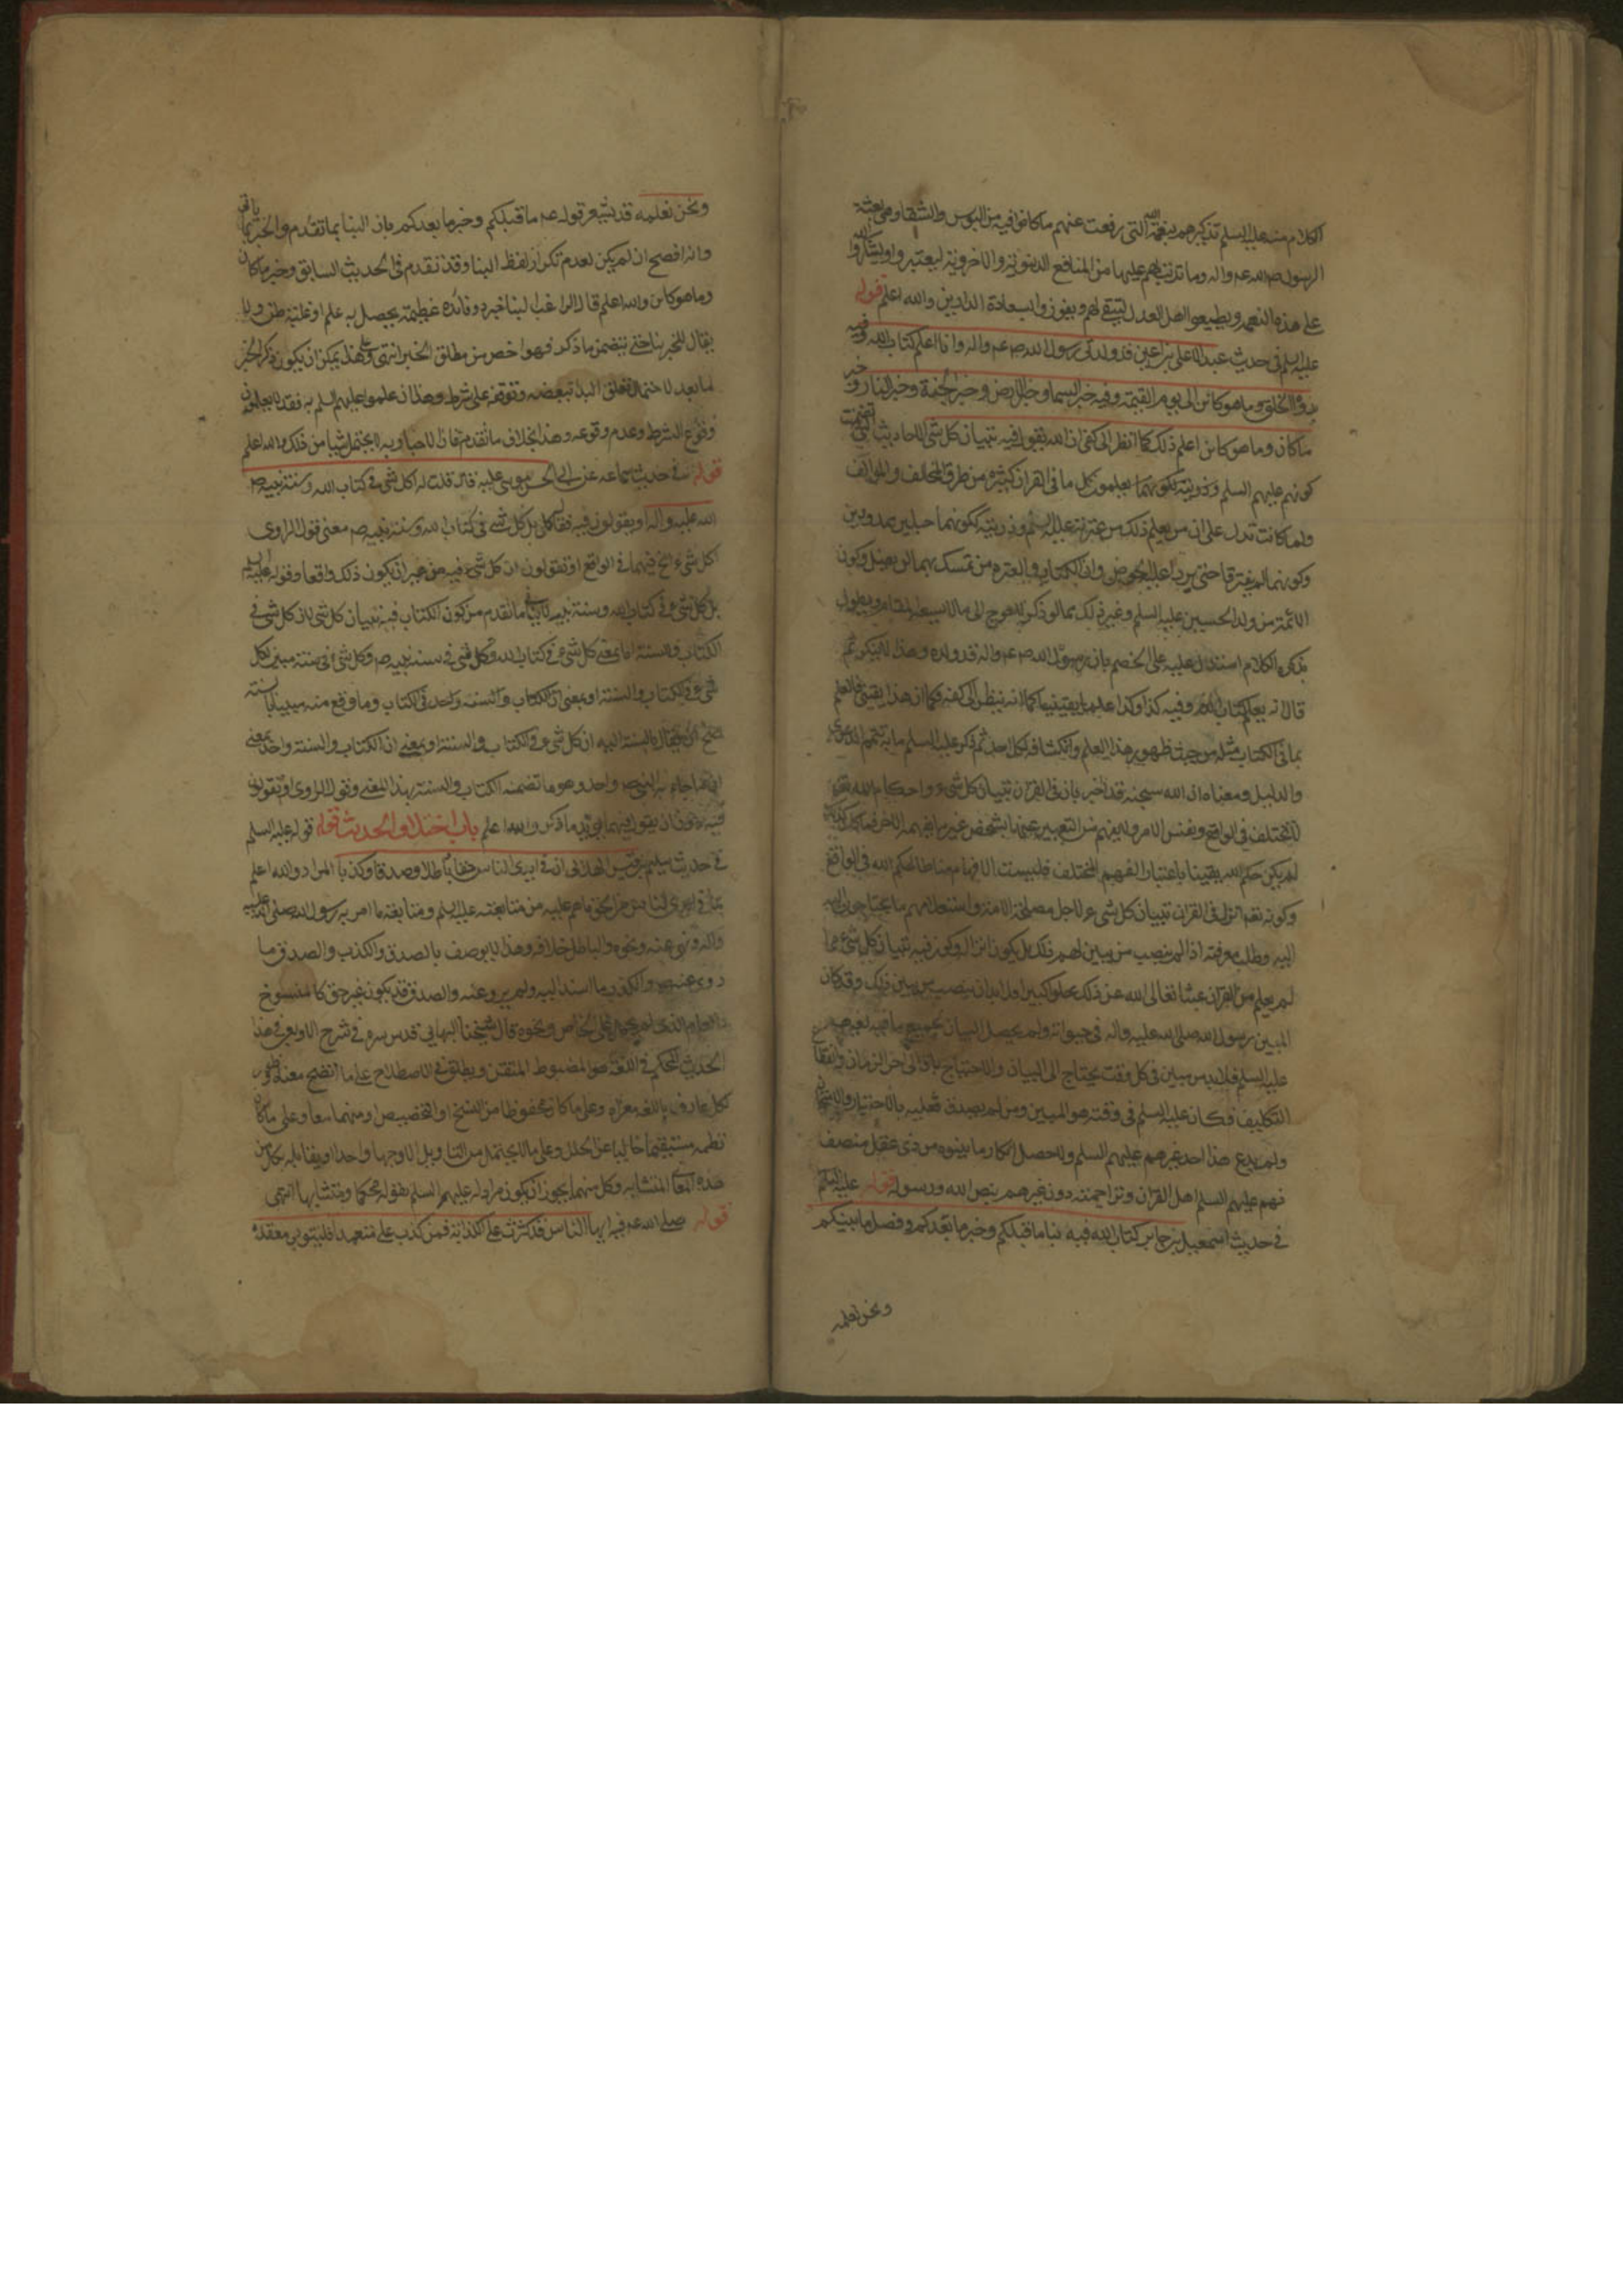 الكلام منه عليه السلم تذكيرهم بنعمة الله التى رفعت عنهم ما كانوا فيه من البؤس والشقا وهى بعثة
الرسول صلى الله عليه واله وما ترتب لهم عليها من المنافع الدنيوية والاخروية ليعتبروا وليشكروا الله
على هذه النعمة ويطيعوا اهل العدل لتبقى لهم ويفوزوا بسعادة الدارين والله اعلم قوله
عليه السلم فى حديث عبد الاعلى بن اعين قد ولدنى رسول الله صلى الله عليه واله وانا اعلم كتاب الله وفيه
بدؤ الخلق وما هو كائن الى يوم القيمة وفيه خبر السما وخبر الارض وخبر الجنة وخبر النار وخبر
ما كان وما هو كائن اعلم ذلك كما انظر الى كفى ان الله يقول فيه تبيان كل شى الاحاديث التى تضمنت
كونهم عليهم السلم وذريته يعلمون كل ما فى القران كثيرة من طرق المخالف والموالف
ولما كانت تدل على ان من يعلم ذلك من عترته عليه السلم وذريته لكونهما حبلين ممدودين
وكونهما لم يفترقا حتى يردا على الحوض وان الكتاب والعترة من تمسك بهما لن يضل وكون
الائمة من ولد الحسين عليه السلم وغير ذلك مما لو ذكر لاحوج الى ما لا يسعه المقام ويطول
بذكره الكلام استدل عليه على الخصم بان رسول الله صلى الله عليه واله قد ولده وهذا لا ينكر ثم
قال انه يعلم كتاب الله وفيه كذا وكذا علما يقينيا كما انه ينظر الى كفه فكما ان هذا يقينى فالعلم
بما فى الكتاب مثله من حيث ظهور هذا العلم وانكشافه لكل احد ثم ذكر عليه السلم ما به تتم الدعوى
والدليل ومعناه ان الله سبحنه قد اخبر بان فى القران تبيان كل شىء واحكام الله تعالى
لا تختلف فى الواقع ونفس الامر ولا يفهم من التعبير عنها بشخص غير ما يفهمه الاخر فما كان كذلك
لم يكن حكم الله يقينا باعتبار الفهم المختلف فليست الافهام مناطا لحكم الله فى الواقع
وكونه تعالى انزل فى القران تبيان كل شىء لاجل مصلحة الامة واستعلامهم ما يحتاجون اليه
اليه وطلب معرفته اذا لم ينصب من يبين لهم ذلك بل يكون انزاله وكون فيه تبيان كل شىء مما
لم يعلم من القران عبثا تعالى الله عن ذلك علوا كبيرا فلا بد ان ينصب من يبين ذلك وقد كان
المبين رسول الله صلى الله عليه واله فى حيوته ولم يحصل البيان بجميع ما فيه لعصره
عليه السلم فلا بد من مبين فى كل وقت يحتاج الى البيان والاحتياج باق الى اخر الزمان وانقطاع
التكليف فكان عليه السلم فى وقته هو المبين ومن لم يصدق فعليه بالاختبار والامتحان
ولم يدع هذا احد غيرهم عليهم السلم ولا حصل انكار ما بينوه من ذى عقل منصف
فهم عليهم السلم اهل القران وتراجمته دون غيرهم بنص الله ورسوله قوله عليه السلم
فى حديث اسمعيل بن جابر كتاب الله فيه نبا ما قبلكم وخبر ما بعدكم وفصل ما بينكم
ونحن نعلمه
ونحن نعلمه قد يشعر قوله عه ما قبلكم وخبر ما بعدكم بان النبا بما تقدم والخبر بما ياتى
وانه افصح ان لم يكن لعدم تكرار لفظ النبا وقد تقدم فى الحديث السابق وخبر ما كان
وما هو كائن والله اعلم قال الراغب النبا خبر ذو فائدة عظيمة يحصل به علم او غلبة ظن ولا
يقال للخبر نبا حتى يتضمن ما ذكر فهو اخص من مطلق الخبر انتهى وعلى هذا يمكن ان يكون ذكر الخبر
لما بعد لاحتمال تعلق البدا ببعضه وتوقفه على شرط وهذا ان علموا عليهم السلم به فقد لا يعلمون
وقوع الشرط وعدم وقوعه وهذا بخلاف ما تقدم فان الاخبار به لا يحتمل شيا من ذلك والله اعلم
قوله فى حديث سماعه عن ابى الحسن موسى عليه قال قلت له اكل شى فى كتاب الله وسنة نبيه ص
الله عليه واله او يقولون فيه فقال بل كل شى فى كتاب الله وسنة نبيه ص معنى قول الراوى
اكل شىء الخ فيهما فى الواقع او تقولون ان كل شىء فيه من غير ان يكون ذلك واقعا وقوله عليه السلم
بل كل شى فى كتاب الله وسنة نبيه ما تقدم من كون الكتاب فيه تبيان كل شى لان كل شى فى
الكتاب والسنة اما بمعنى كل شىء فى كتاب الله وكل شى فى سنة نبيه ص وكل شىء فى سنة مبين لكل
شىء فى الكتاب والسنة او بمعنى ان الكتاب والسنة واحد فى الكتاب وما وقع منه مبينا بالسنة
يصح ان يقال بالنسبة اليه ان كل شى فى الكتاب والسنة او بمعنى ان الكتاب والسنة واحد بمعنى
ان ما جاء به النبى ص واحد وهو ما تضمنه الكتاب والسنة بهذا المعنى وقول الراوى او تقولون
فيه دون ان يقول فيهما يؤيد ما ذكر والله اعلم باب اختلاف الحديث قوله قوله عليه السلم
فى حديث سليم بن قيس الهلالى ان فى ايدى الناس حقا وباطلا وصدقا وكذبا المراد والله اعلم
بما فى ايدى الناس من الحق ما هم عليه من متابعته عليه السلم ومتابعة ما امر به رسول الله صلى الله عليه
واله ونهى عنه ونحوه والباطل خلافه وهذا لا يوصف بالصدق والكذب والصدق ما
روى عنه ص والكذب ما اسند اليه ولم يرو عنه والصدق قد يكون غير حق كالمنسوخ
والعام الذى لم يحمل على الخاص ونحوه قال شيخنا البهايى قدس سره فى شرح الاربعين فى هذا
الحديث المحكم فى اللغة هو المضبوط المتقن ويطلق فى الاصطلاح على ما اتضح معناه وظهر
لكل عارف باللغه مغزاه وعلى ما كان محفوظا من النسخ او التخصيص او منهما معا وعلى ما كان
نظمه مستقيما خاليا عن الخلل وعلى ما لا يحتمل من التاويل الا وجها واحدا ويقابله بكل من
هذه المعانى المتشابه وكل منهما يجوز ان يكون مراد له عليهم السلم بقوله محكما ومتشابها انتهى
قوله صلى الله عه فيه ايها الناس قد كثرت على الكذابة فمن كذب على متعمدا فليتبوء مقعده